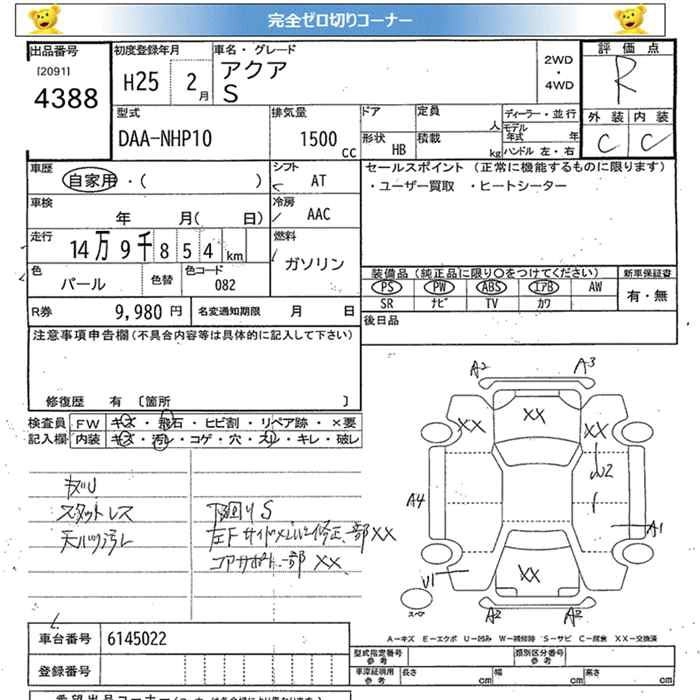 完全ゼロ切りコーナー
出品番号 初度登録年月 車名・グレード 評価点
[2091]
4388 H25 2月 アクア 2WD・4WD R
S
型式 排気量 ドア 定員 人 ディーラー・並行 外装 内装
DAA-NHP10 1500 CC 形状 HB 積載 kg モデル年式 年 C C
ハンドル 左・右
車歴 シフト セールスポイント (正常に機能するものに限ります)
自家用・( ) AT ・ユーザー買取 ・ヒートシーター
車検 冷房
年 月( 日) AAC
走行 燃料
14万9千854km ガソリン
色 色替 色コード 装備品(純正品に限り〇をつけてください) 新車保証書
パール 082 PS PW ABS エアB AW 有・無
SR ナビ TV カワ
R券 9,980円 名変通知期限 月 日 後日品
注意事項申告欄(不具合内容等は具体的に記入して下さい)
修復歴 有 〔箇所 〕
検査員 FW キズ・飛石・ヒビ割・リペア跡・×要
記入欄 内装 キズ・汚レ・コゲ・穴・スリ・キレ・破レ
キズU
スタットレス 下回りS
天バリ汚レ 左Fサイドメンバー修正、一部XX
コアサポート一部XX
A2 A3
XX XX XX
U2
A4 A1
U1 XX
スペア A2 A2
A-キズ E-エクボ U-凹み W-補修跡 S-サビ C-腐食 XX-交換済
車台番号 6145022
登録番号
型式指定番号 参考 類別区分番号 参考
車庫証明用 参考 長さ cm 幅 cm 高さ cm